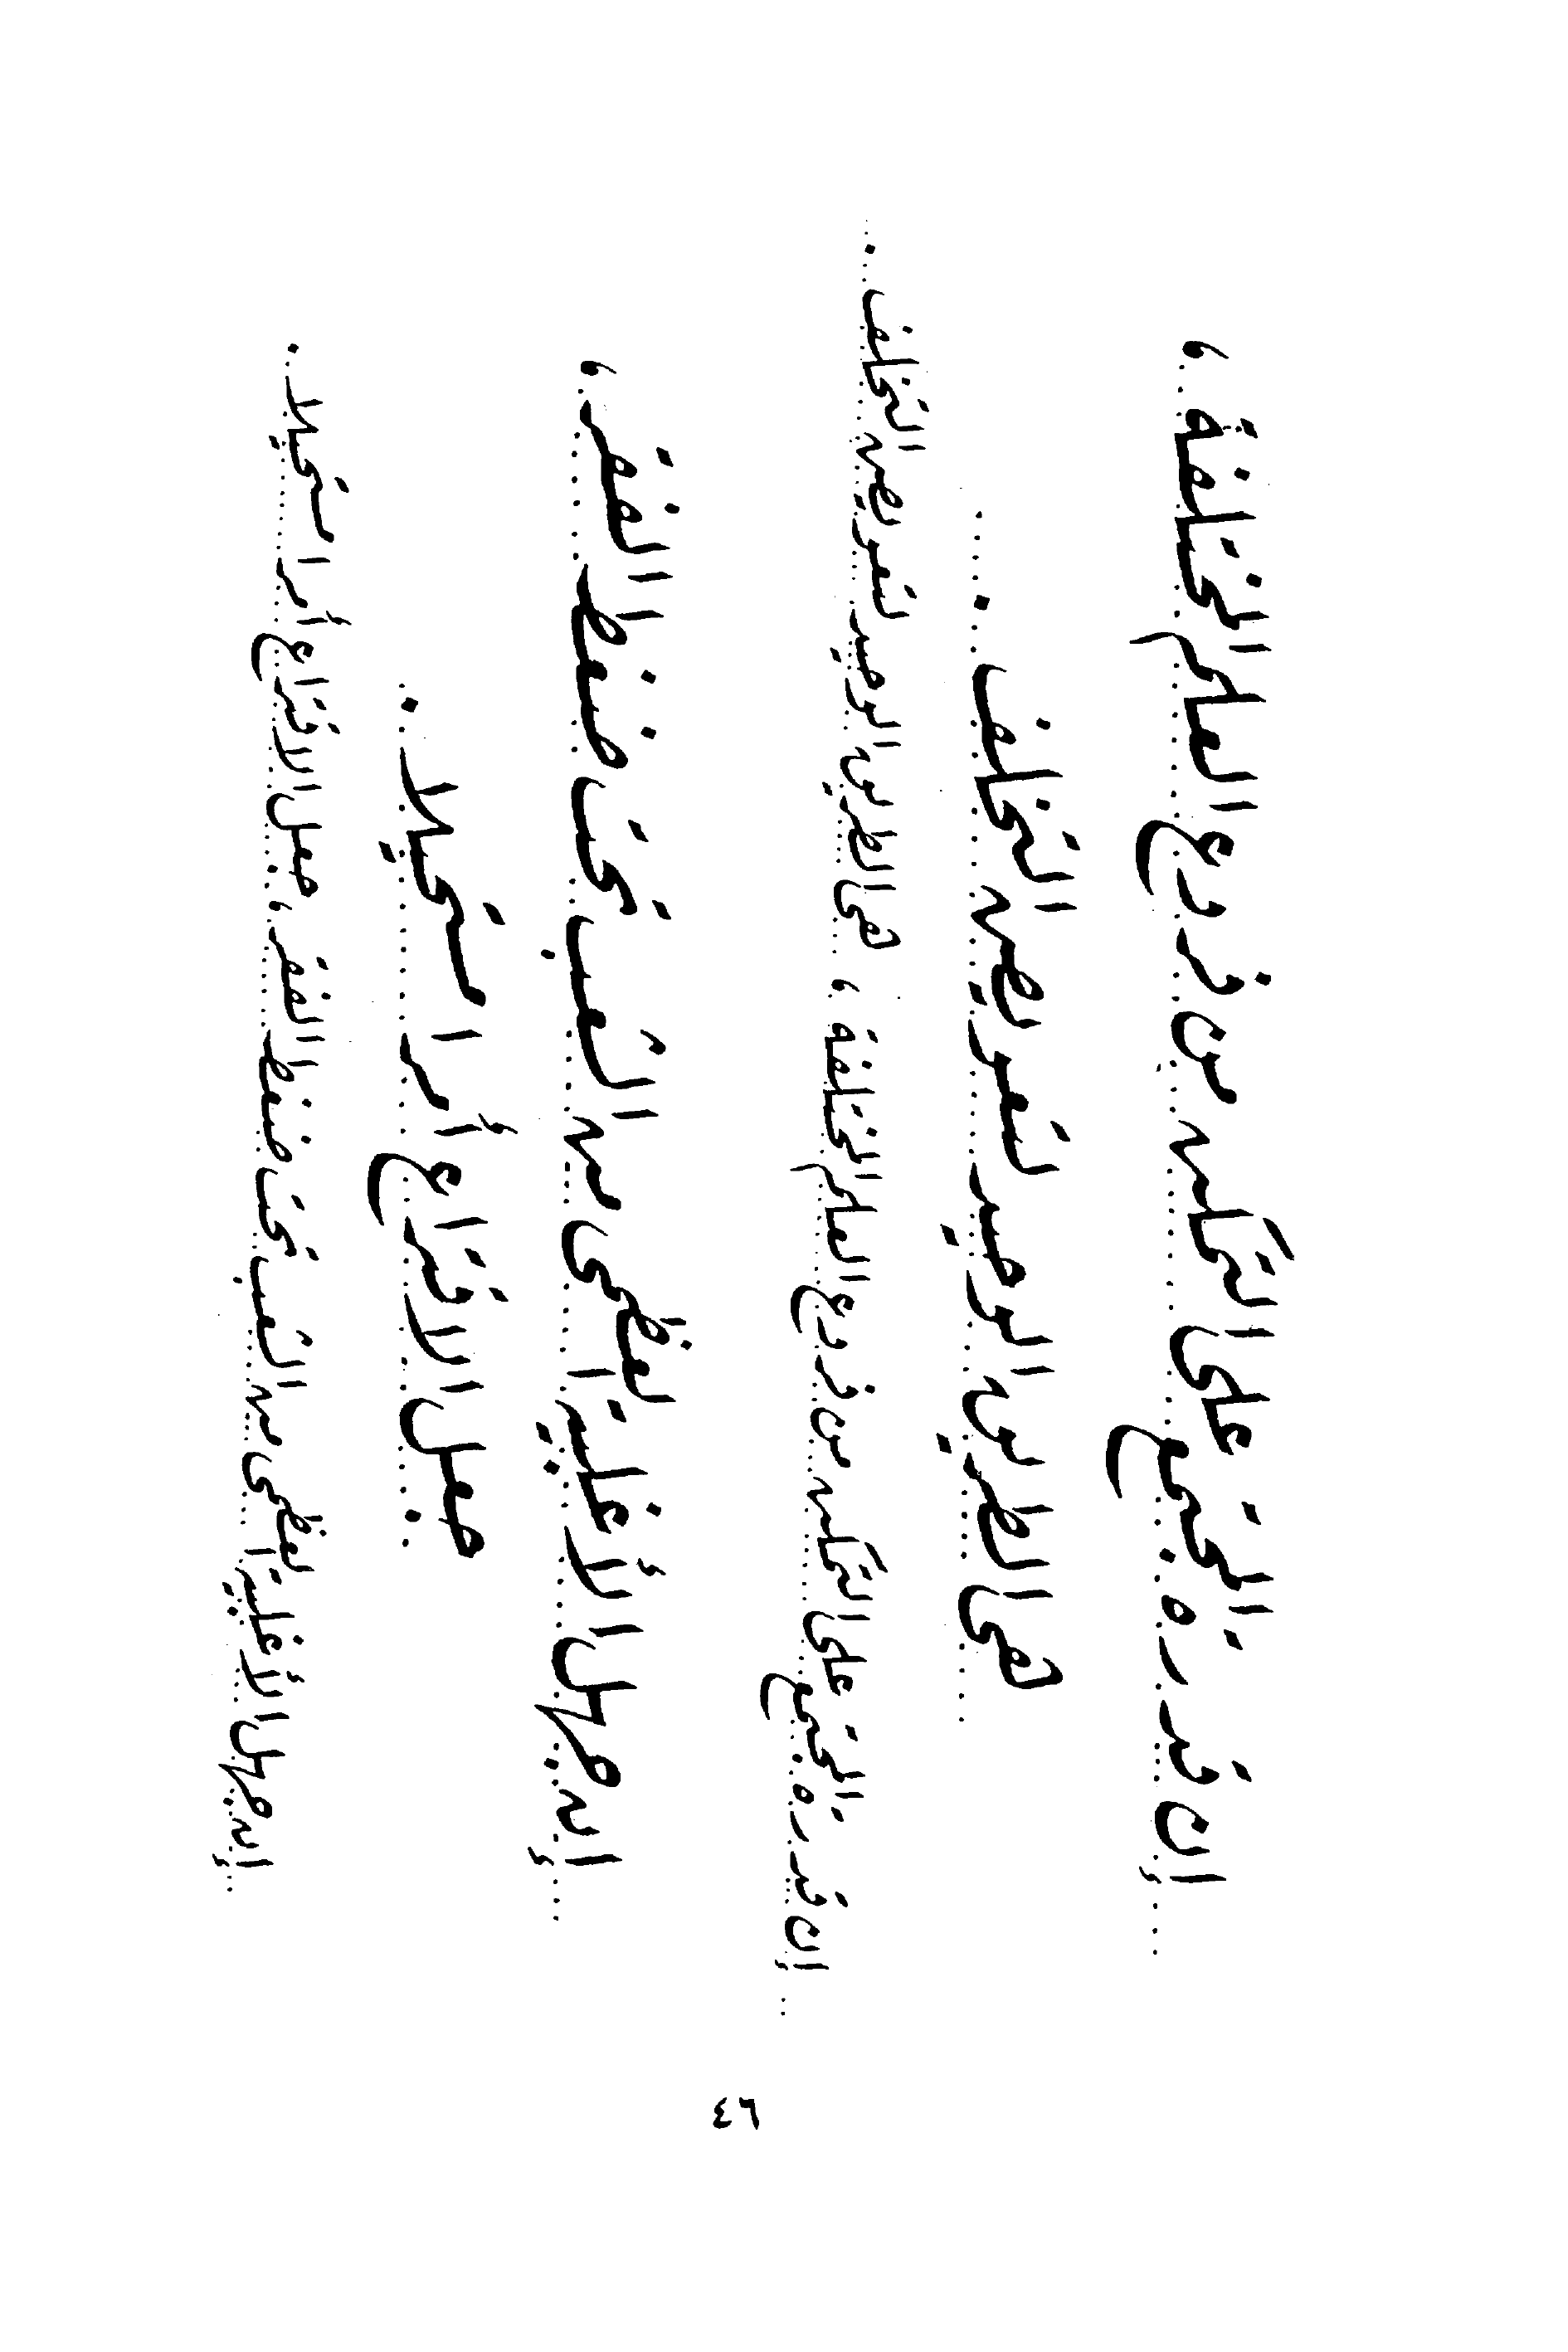 إن قدرة المجتمع على التمكن من فروع العلم المختلفة ،
هى الطريق الوحيد لتعويض التخلف .
إن قدرة المجتمع على التمكن من فروع العلم المختلفة ، هى الطريق الوحيد لتعويض التخلف .
إن جهل الأغلبية العظمى من الشعب تحت ضغط الفقر ،
جعل الاقتراع أمرا مستحيلا .
إن جهل الأغلبية العظمى من الشعب تحت ضغط الفقر ، جعل الاقتراع أمرا مستحيلا .
٤٦